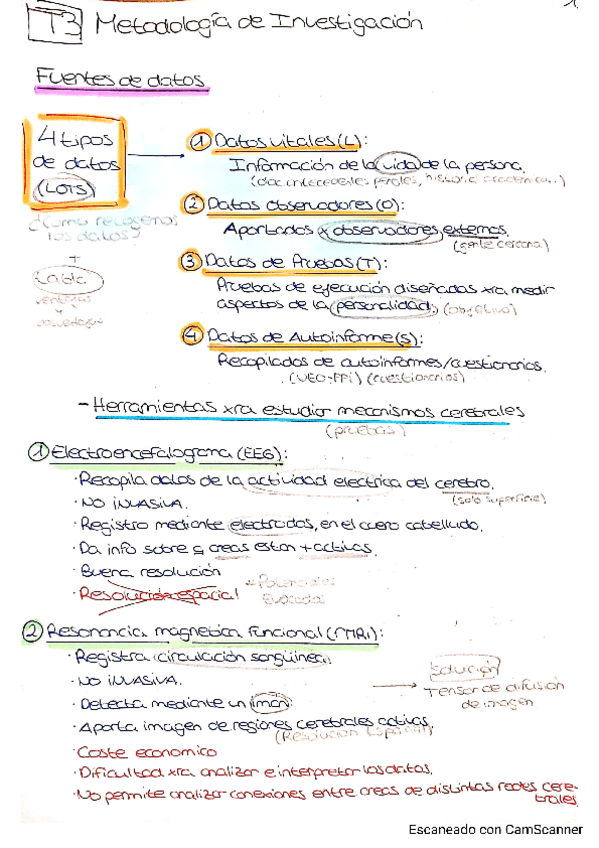 T3 Metodología de Investigación
Fuentes de datos
4 tipos
de datos
(LOTS)
¿Cómo recogemos
los datos?
+
tabla
ventajas
y
desventajas
① Datos vitales (L):
Información de la vida de la persona.
② Datos observadores (O):
Aportados x observadores externos.
(gente cercana)
③ Datos de Pruebas (T):
Pruebas de ejecución diseñadas xra medir
aspectos de la personalidad. (objetivo)
④ Datos de Autoinforme (S):
Recopilados de autoinformes/cuestionarios.
(NEO-PPi) (cuestionarios)
- Herramientas xra estudiar mecanismos cerebrales
(pruebas)
① Electroencefalograma (EEG):
· Recopila datos de la actividad electrica del cerebro.
(solo superficie)
· NO INVASIVA.
· Registro mediante electrodos, en el cuero cabelludo.
· Da info sobre q areas estan + activas.
· Buena resolución
* Potenciales
Evocados
· Resolución espacial
② Resonancia magnetica funcional (fMRi):
· Registra circulación sangüinea.
· NO INVASIVA.
· Detecta mediante un iman.
· Aporta imagen de regiones cerebrales activas.
(Resolución Espacial)
Solución
→ Tensor de difusión
de imagen
· Coste economico
· Dificultad xra analizar e interpretar los datos.
· No permite analizar conexiones entre areas de distintas redes cere-
brales
Escaneado con CamScanner